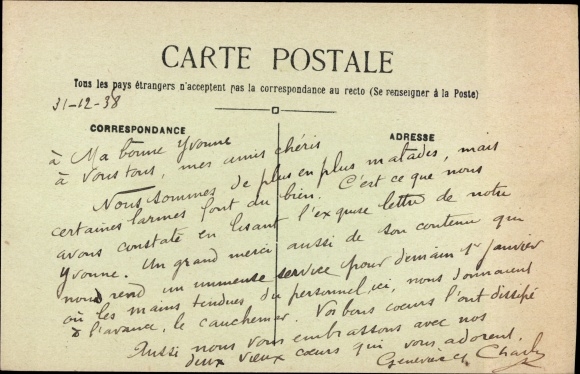 CARTE POSTALE
Tous les pays étrangers n'acceptent pas la correspondance au recto (Se renseigner à la Poste)
31-12-38
CORRESPONDANCE
ADRESSE
à Ma bonne Yvonne
à vous tous, mes amis chéris
Nous sommes de plus en plus malades, mais
certaines larmes font du bien. C'est ce que nous
avons constaté en lisant l'exquise lettre de notre
Yvonne. Un grand merci aussi de son contenu qui
nous rend un immense service pour demain 1er Janvier
où les mains tendues du personnel, ici, nous donnaient
à l'avance, le cauchemar. Vos bons coeurs l'ont dissipé
Aussi nous vous embrassons avec nos
deux vieux coeurs qui vous adorent.
Geneviève Charles